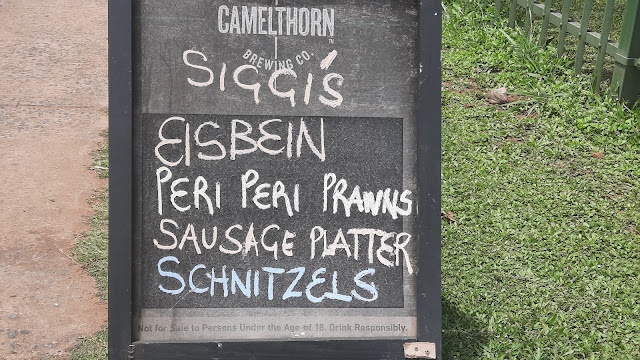 CAMELTHORN™
BREWING CO.
SIGGI'S
EISBEIN
PERI PERI PRAWNS
SAUSAGE PLATTER
SCHNITZELS
Not for Sale to Persons Under the Age of 18. Drink Responsibly.